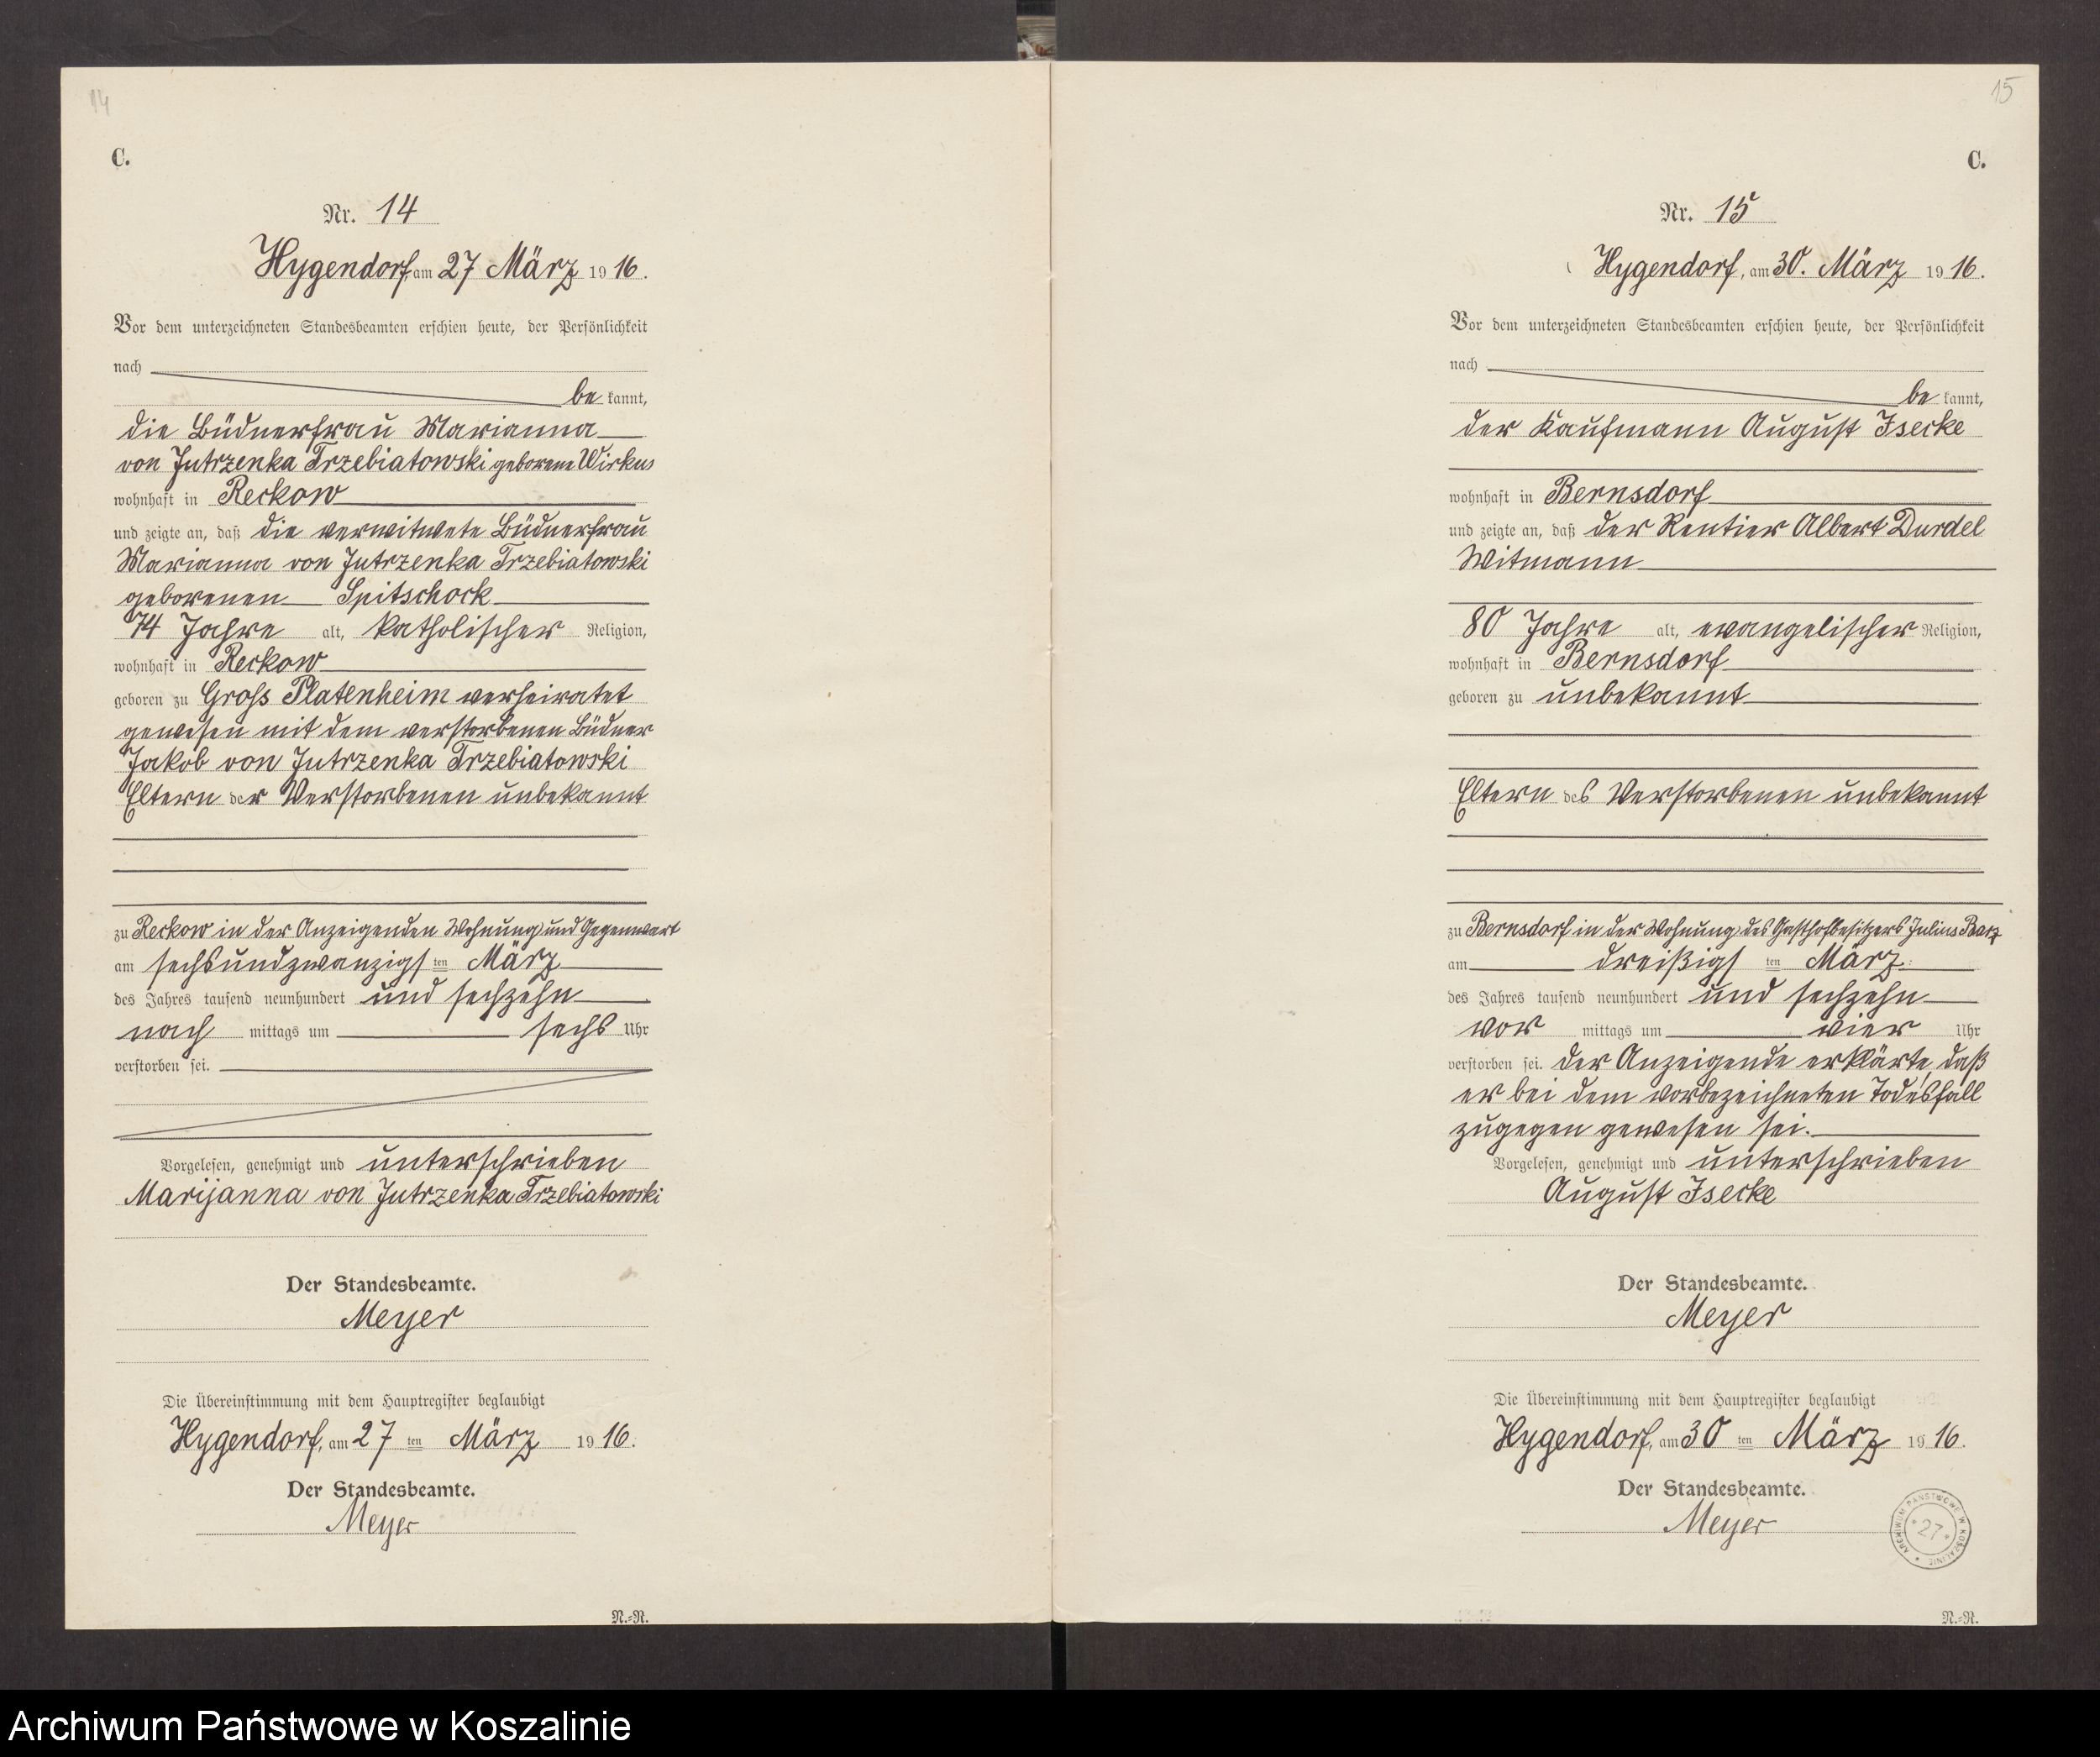 14
C.
Nr. 14
Hygendorf, am 27 März 1916.
Vor dem unterzeichneten Standesbeamten erschien heute, der Persönlichkeit
nach
be kannt,
die Büdnerfrau Marianna
von Jutrzenka Trzebiatowski geborene Wirkus
wohnhaft in Reckow
und zeigte an, daß die verwitwete Büdnerfrau
Marianna von Jutrzenka Trzebiatowski
geborenen Spitschock
74 Jahre alt, katholischer Religion,
wohnhaft in Reckow
geboren zu Gross Platenheim verheiratet
gewesen mit dem verstorbenen Büdner
Jakob von Jutrzenka Trzebiatowski
Eltern der Verstorbenen unbekannt
zu Reckow in der Anzeigenden Wohnung und Gegenwart
am sechsundzwanzigsten März
des Jahres tausend neunhundert und sechzehn
nach mittags um sechs Uhr
verstorben sei.
Vorgelesen, genehmigt und unterschrieben
Marijanna von Jutrzenka Trzebiatowski
Der Standesbeamte.
Meyer
Die Übereinstimmung mit dem Hauptregister beglaubigt
Hygendorf, am 27 ten März 1916.
Der Standesbeamte.
Meyer
N.=R.
15
C.
Nr. 15
Hygendorf, am 30. März 1916.
Vor dem unterzeichneten Standesbeamten erschien heute, der Persönlichkeit
nach
be kannt,
der Kaufmann August Isecke
wohnhaft in Bernsdorf
und zeigte an, daß der Rentier Albert Durdel
Witmann
80 Jahre alt, evangelischer Religion,
wohnhaft in Bernsdorf
geboren zu unbekannt
Eltern des Verstorbenen unbekannt
zu Bernsdorf in der Wohnung des Gasthofbesitzers Julius
am dreißigsten März
des Jahres tausend neunhundert und sechzehn
vor mittags um vier Uhr
verstorben sei. Der Anzeigende erklärte, daß
er bei dem vorbezeichneten Todesfall
zugegen gewesen sei.
Vorgelesen, genehmigt und unterschrieben
August Isecke
Der Standesbeamte.
Meyer
Die Übereinstimmung mit dem Hauptregister beglaubigt
Hygendorf, am 30 ten März 1916.
Der Standesbeamte.
Meyer
ARCHIWUM PAŃSTWOWE W KOSZALINIE
27
N.=R.
Archiwum Państwowe w Koszalinie